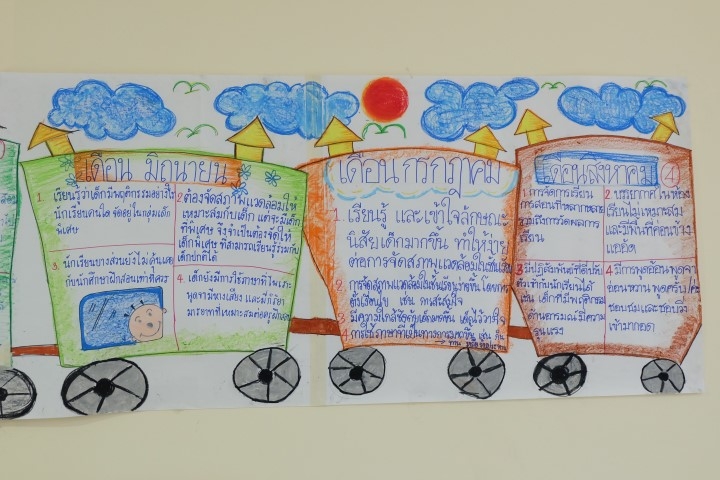 เดือน มิถุนายน
1. เรียนรู้ว่าเด็กมีพฤติกรรมอย่างไร
นักเรียนคนใด จัดอยู่ในกลุ่มเด็ก
พิเศษ
2. ต้องจัดสภาพแวดล้อมให้
เหมาะสมกับเด็ก แต่จะมีเด็ก
ที่พิเศษ จึงจำเป็นต้องจัดให้
เด็กพิเศษ ที่สามารถเรียนรู้ร่วมกับ
เด็กปกติได้
3. นักเรียนบางส่วนยังไม่คุ้นเคย
กับนักศึกษาฝึกสอนเท่าที่ควร
4. เด็กยังมีการใช้ภาษาที่ไพเราะ
พูดจามีหางเสียง และมีกิริยา
มารยาทที่เหมาะสมต่อครูฝึกสอน
เดือน กรกฎาคม
1. เรียนรู้ และเข้าใจลักษณะ
นิสัยเด็กมากขึ้น ทำให้ง่าย
ต่อการจัดสภาพแวดล้อมในชั้นเรียน
2. การจัดสภาพแวดล้อมในชั้นเรียน
ตัวเรียนใน เช่น
3. มีความใกล้ชิดกับเด็กมากขึ้น เด็กไว้วางใจ
4. การใช้ภาษาที่เป็นทางการมากขึ้น เช่น
เดือนสิงหาคม
4
1. การจัดการเรียน
การสอนที่หลากหลาย
รวมถึงการวัดผลการ
เรียน
2. บรรยากาศในห้อง
เรียนไม่เหมาะสม
และมีพื้นที่ค่อนข้าง
แออัด
3. มีปฏิสัมพันธ์ที่ดีปรับ
ตัวเข้ากับนักเรียนได้
เช่น เด็กที่มีพฤติกรรม
ด้านอารมณ์มีความ
รุนแรง
4. มีการพูดอ้อน พูดจา
อ่อนหวาน พูดครับ/ค่ะ
ชอบชมและชอบวิ่ง
เข้ามากอด